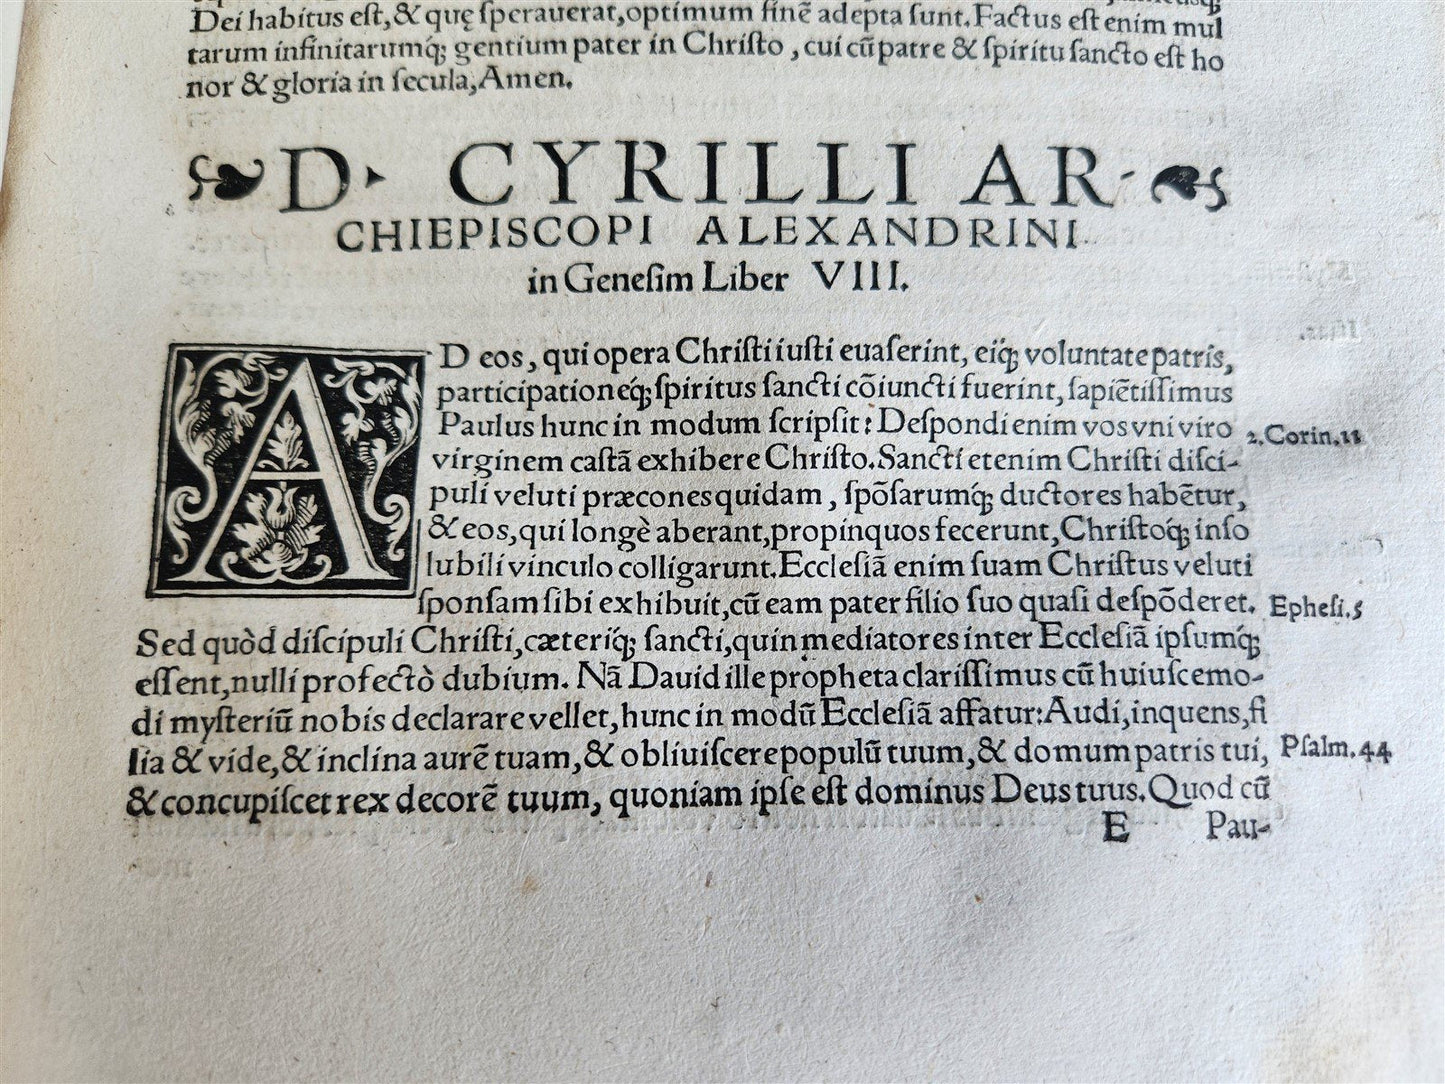 Dei habitus eſt, & quę ſperauerat, optimum finẽ adepta ſunt. Factus eſt enim mul
tarum infinitarumq́; gentium pater in Chriſto, cui cũ patre & ſpiritu ſancto eſt ho
nor & gloria in ſecula, Amen.
D. CYRILLI AR-
CHIEPISCOPI ALEXANDRINI
in Geneſim Liber VIII.
AD eos, qui opera Chriſti iuſti euaſerint, eiq́; voluntate patris,
participationeq́; ſpiritus ſancti cõiuncti fuerint, ſapiẽtiſſimus
Paulus hunc in modum ſcripſit: Deſpondi enim vos vni viro
2. Corin. 11
virginem caſtã exhibere Chriſto. Sancti etenim Chriſti diſci-
puli veluti præcones quidam, ſpõſarumq́; ductores habẽtur,
& eos, qui longè aberant, propinquos fecerunt, Chriſtoq́; inſo
lubili vinculo colligarunt. Eccleſiã enim ſuam Chriſtus veluti
ſponſam ſibi exhibuit, cũ eam pater filio ſuo quaſi deſpõderet.
Epheſi. 5
Sed quòd diſcipuli Chriſti, cæteriq́; ſancti, quin mediatores inter Eccleſiã ipſumq́;
eſſent, nulli profectò dubium. Nã Dauid ille propheta clariſſimus cũ huiuſcemo-
di myſteriũ nobis declarare vellet, hunc in modũ Eccleſiã affatur: Audi, inquens, fi
lia & vide, & inclina aurẽ tuam, & obliuiſcere populũ tuum, & domum patris tui,
Pſalm. 44
& concupiſcet rex decorẽ tuum, quoniam ipſe eſt dominus Deus tuus. Quod cũ
E Pau-